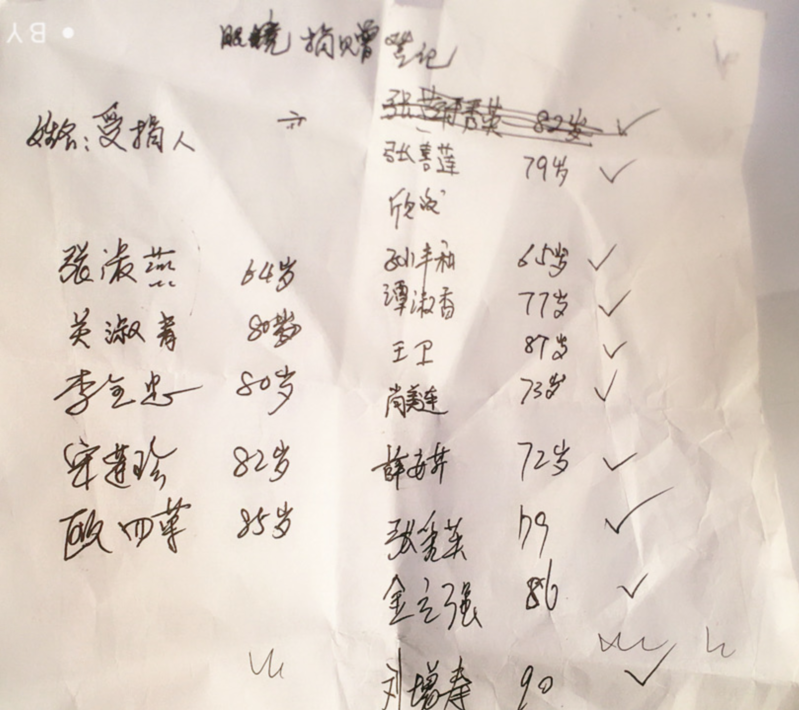 眼镜捐赠登记
姓名:受捐人
张淑燕 64岁
吴淑青 80岁
李全忠 80岁
宋莲珍 82岁
欧四革 85岁
张 菁英 82岁 ✓
张喜莲 79岁 ✓
欣波
孙丰和 65岁 ✓
谭淑香 77岁 ✓
王卫 87岁 ✓
尚美连 73岁 ✓
薛安井 72岁 ✓
张秀英 79 ✓
金立强 86 ✓
刘增寿 90 ✓